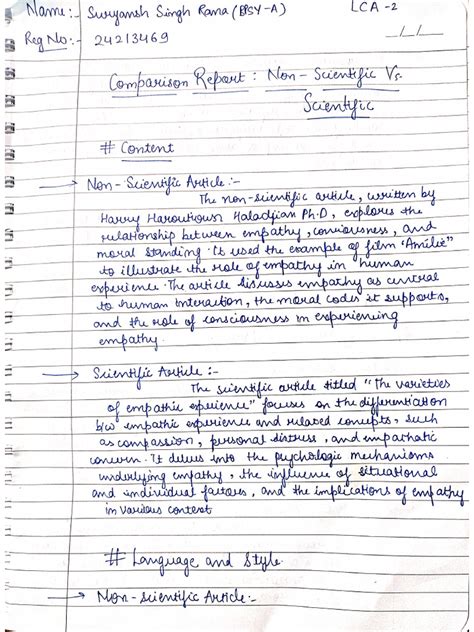 Name:- Suryansh Singh Rana (BPSY-A) LCA-2
Reg No:- 24213469 _/_/_
Comparison Report: Non-Scientific Vs.
Scientific
# Content
→ Non-Scientific Article:-
The non-scientific article, written by
Harry Haroutioun Haladjian Ph.D, explores the
relationship between empathy, consiousness, and
moral standing. It used the example of film 'Amilie'
to illustrate the role of empathy in human
experience. The article discusses empathy as central
to human interaction, the moral codes it supports,
and the role of consciousness in experiencing
empathy.
→ Scientific Article:-
The scientific article titled "The varieties
of empathic experience" focuses on the differentiation
b/w empathic experience and related concepts, such
as compassion, personal distress, and empathatic
concern. It delves into the psychologic mechanisms
underlying empathy, the influence of situational
and individual factors, and the implications of empathy
in various context
# Language and Style
→ Non-scientific Article:-